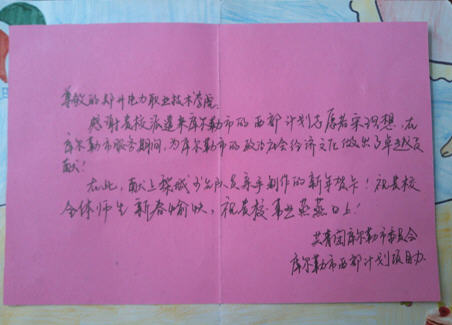 尊敬的郑州电力职业技术学院:
感谢贵校派遣来库尔勒市的西部计划志愿者宋理想,在
库尔勒市服务期间,为库尔勒市的政治社会经济文化做出了卓越贡
献!
在此,献上梨城少先队员亲手制作的新年贺卡!祝贵校
全体师生新春愉快,祝贵校事业蒸蒸日上!
共青团库尔勒市委员会
库尔勒市西部计划项目办